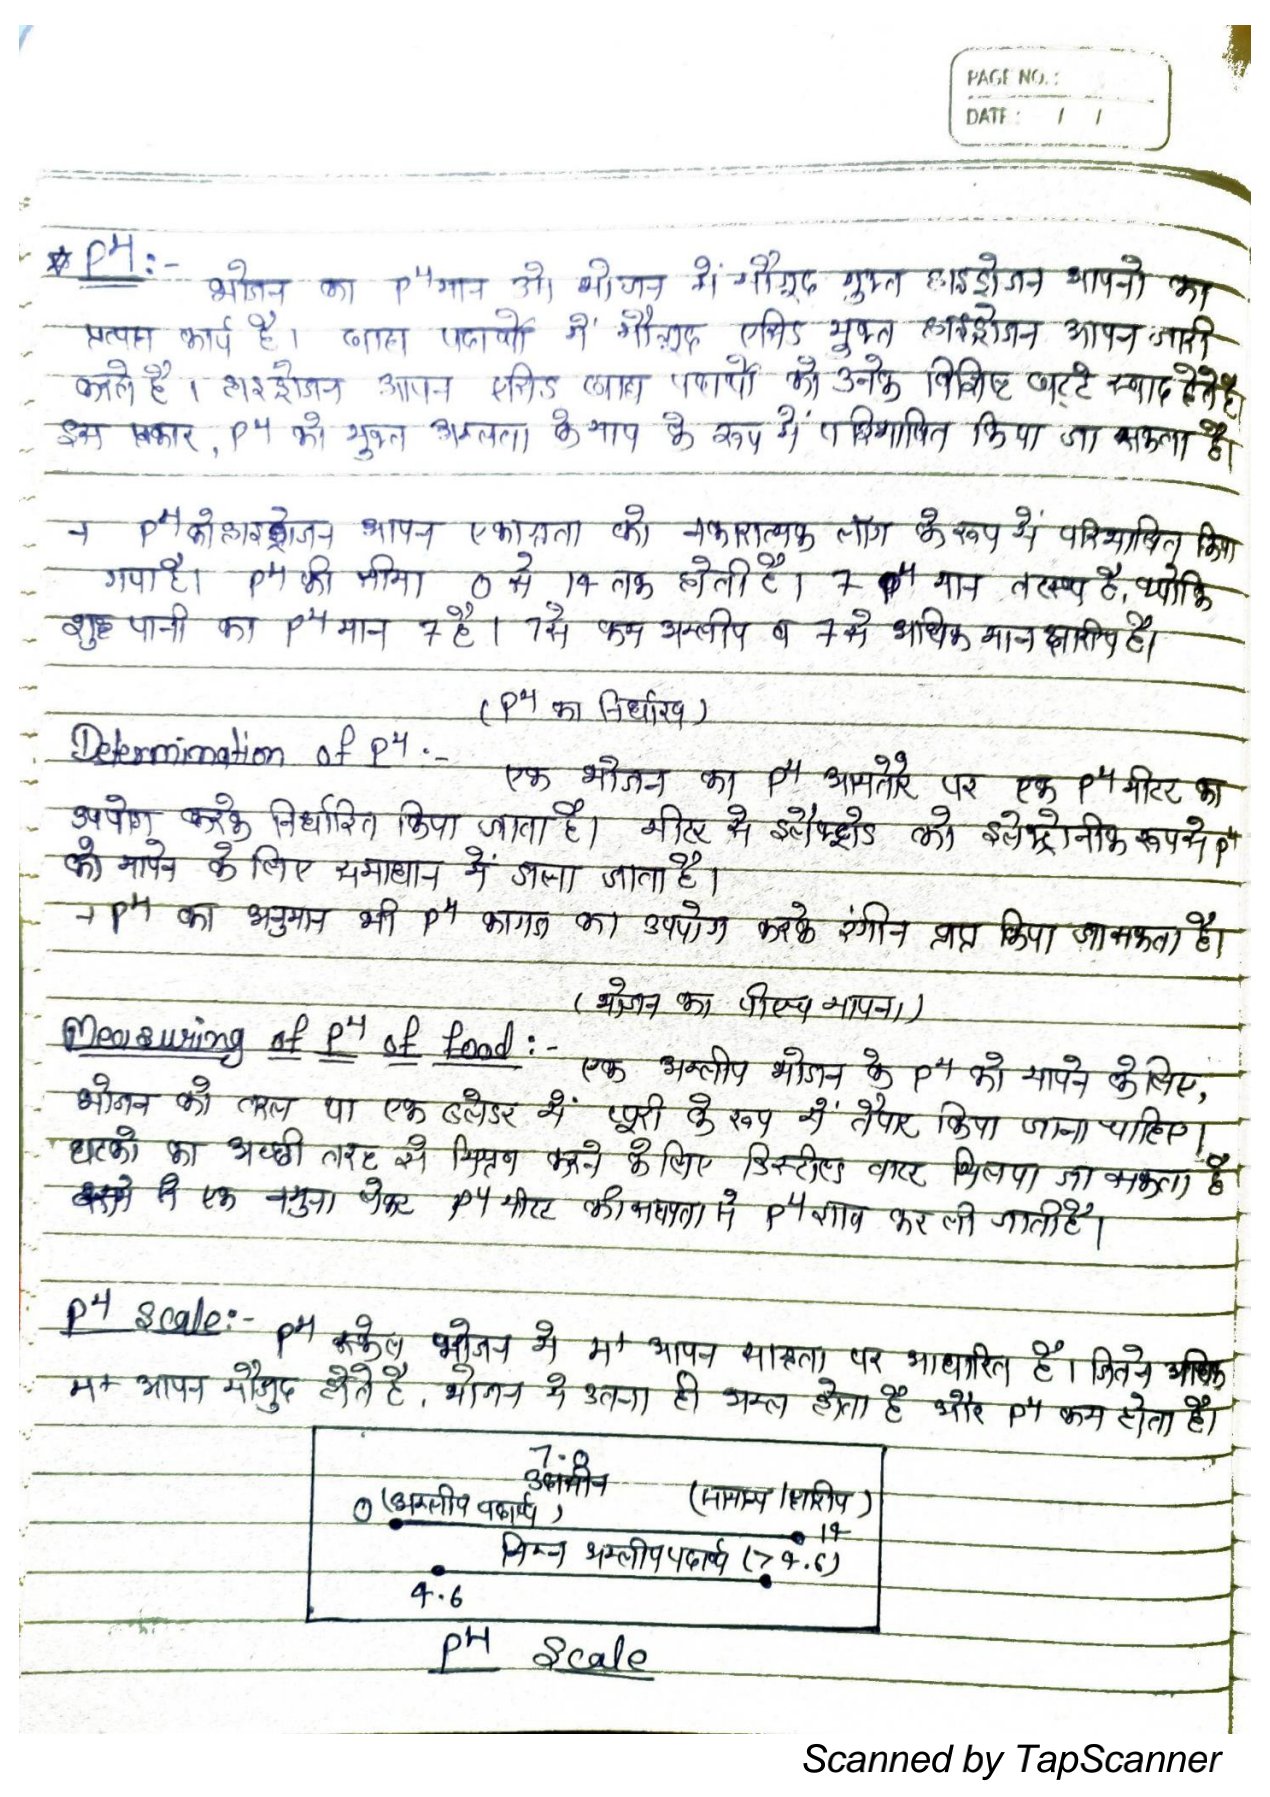 PAGE NO. :
DATE : / /
* PH :-
भोजन का PH मान ओ भोजन में मौजूद मुक्त हाइड्रोजन आयनो का
प्रत्यक्ष कार्य है। खाद्य पदार्थो में मौजूद एसिड मुक्त हाइड्रोजन आयन जारी
करते है। हाइड्रोजन आयन एसिड खाद्य पदार्थो को उनके विशिष्ट खट्टे स्वाद देते है।
इस प्रकार, PH को मुक्त अम्लता के माप के रूप में परिभाषित किया जा सकता है।
→ PH को हाइड्रोजन आयन एकाग्रता को नकारात्मक लॉग के रूप में परिभाषित किया
गया है। PH की सीमा 0 से 14 तक होती है। 7 PH मान तटस्थ है, क्योकि
शुद्ध पानी का PH मान 7 है। 7 से कम अम्लीय व 7 से अधिक मान क्षारीय है।
(PH का निर्धारण)
Determination of PH :-
एक भोजन का PH आमतौर पर एक PH मीटर का
उपयोग करके निर्धारित किया जाता है। मीटर से इलैक्ट्रोड को इलेक्ट्रोनीक रूप से PH
को मापने के लिए समाधान में डाला जाता है।
→ PH का अनुमान भी PH कागज का उपयोग करके रंगीन प्राप्त किया जा सकता है।
(भोजन का पीएच मापना)
Measuring of PH of food :-
एक अम्लीय भोजन के PH को मापने के लिए,
भोजन को तरल या एक ब्लेंडर में प्यूरी के रूप में तैयार किया जाना चाहिए।
घटको का अच्छी तरह से मिश्रण करने के लिए डिस्टील्ड वाटर मिलाया जा सकता है
से एक नमुना लेकर PH मीटर की सहायता से PH ज्ञात कर ली जाती है।
PH Scale:- PH स्केल भोजन मे H+ आयन सान्द्रता पर आधारित है। जितने अधिक
H+ आयन मौजुद होते है, भोजन मे उतना ही अम्ल होता है और PH कम होता है।
7.0
उदासीन
0 (अम्लीय पदार्थ) (सामान्य / क्षारीय)
14
निम्न अम्लीय पदार्थ (>4.6)
4.6
PH Scale
Scanned by TapScanner